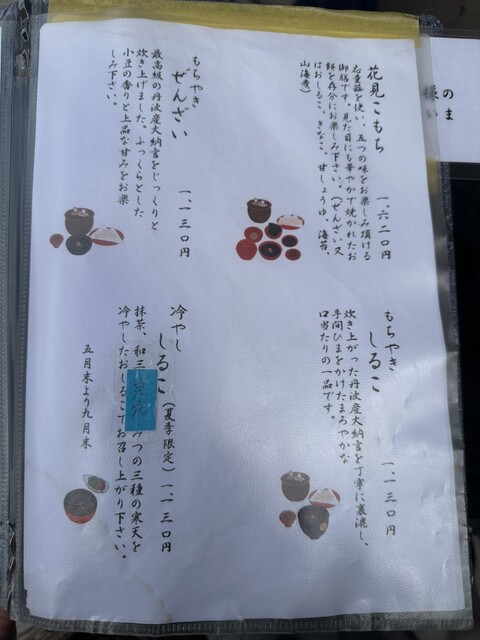 花見こもち 一、六二〇円
応量器を使い、五つの味をお楽しみ頂ける
御膳です。見た目にも華やかで焼かれたお
餅を存分にお楽しみ下さい。(ぜんざい又
はおしるこ、きなこ、甘しょうゆ、海苔、
山海煮)
もちやき
ぜんざい 一、一三〇円
最高級の丹波産大納言をじっくりと
炊き上げました。ふっくらとした
小豆の香りと上品な甘みをお楽
しみ下さい。
もちやき
しるこ 一、一三〇円
炊き上がった丹波産大納言を丁寧に裏漉し、
手間ひまをかけたまろやかな
口当たりの一品です。
冷やし
しるこ(夏季限定)一、一三〇円
抹茶、和三 みつの三種の寒天を
冷やしたおしるこでお召し上がり下さい。
五月末より九月末